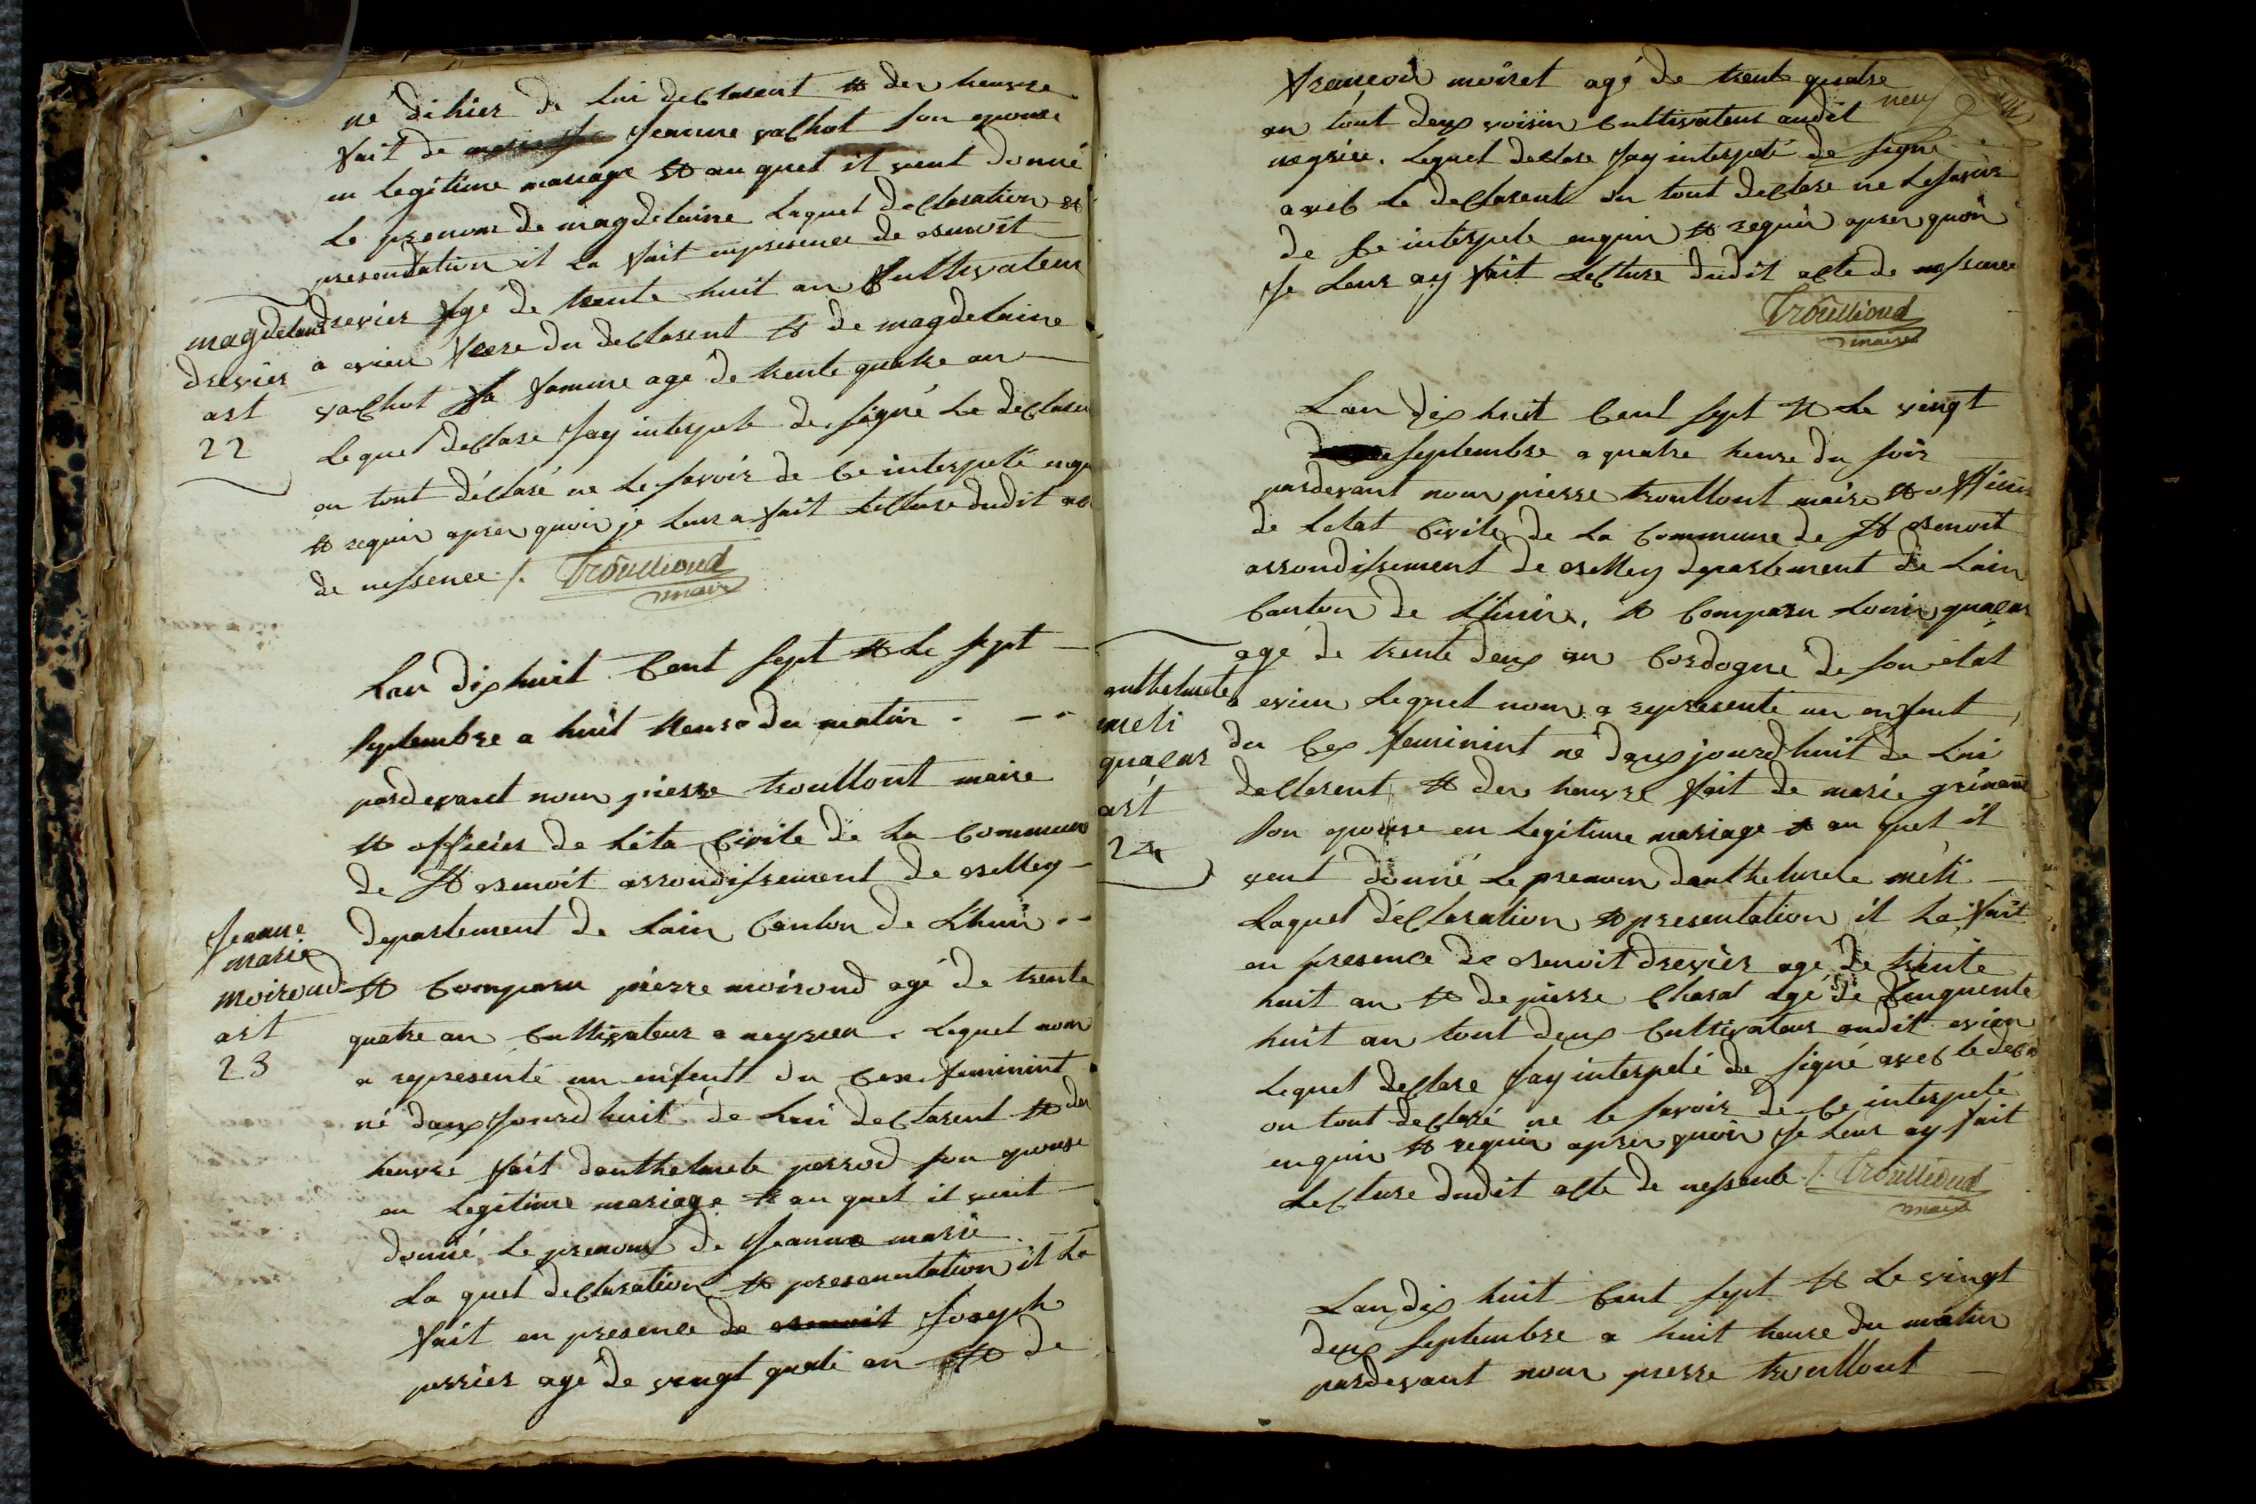 né dihier de lui declarent et der heuvre
fait de Jeanne vachot son epouse
en legitime mariage et au quel il veut donné
le prenom de magdelaine laquel declaration et
presendation il la fait enpresence de benoit
drevier agé de trente huit an cultivateur
a evieu frere du declarent et de magdelaine
vachot sa famme agé de trente quatre an
lequel declare jay interpelé de signé le declare
on tout déclaré ne le savoir de ce interpelé
et requir apres quoir je leur a fait lecture dudit
de nessence /. Troullioud
maire
magdelaine
drevier
art
22
Lan dix huit cent sept et le sept
septembre a huit heure du matin
pardevant nous pierre troulloud maire
et officier de léta civile de la commune
de st benoit arrondissement de belley
departement de lain canton de Lhuir
et comparu pierre moiroud agé de trente
quatre an cultivateur a neyrieu. lequel nous
a represente un enfentt du cex feminint
né daux jourdhuit de lui declarent et der
heuvre fait danthelmete perrod son epouse
en legitime mariage et au quel il veut
donné le prenom de Jeanne marie
la quel declaration et presenentation il la
fait en presence de Joseph
perrier agé de vingt quatre an et de
Jeanne
marie
moiroud
art
23
francois moiret agé de trente quatre
an tout deux voisin cultivateur audit neuf
negrieu. lequel declare jay interpelé de signé
avec le declarent on tout declare ne le savoir
de ce interpele enquir et requir apres quoir
je leur ay fait lecture dudit acte de nessence
Troullioud
maire
Lan dix huit cent sept et le vingt
septembre a quatre heure du soir
pardevant nous pierre troullout maire et officier
de letat civile de la commune de st benoit
arrondissement de belley departement de lain
canton de Lhuir, et comparu louis qualar
agé de trente deux an cordogné de son état
a evieu lequel nous a represente un enfent
du cex feminint né daux jourdhuit de lui
declarent et der heuvre fait de marie
son epouse en legitime mariage et au quel il
veut donné le prenom danthelmete méli
laquel déclaration et presentation il la fait
en presence de benoit drevier agé de trente
huit an et de pierre charat agé de cinquente
huit an tout deux cultivateur audit evieu
lequel declare jay interpelé de signé avec le
on tout declaré ne le savoir de ce interpelé
enquir et requir apres quoir je leur ay fait
lecture dudit acte de nessence /. Troullioud
maire
anthelmete
meli
qualar
art
24
Lan dix huit cent sept et le vingt
deux septembre a huit heure du matin
pardevant nous pierre troullout